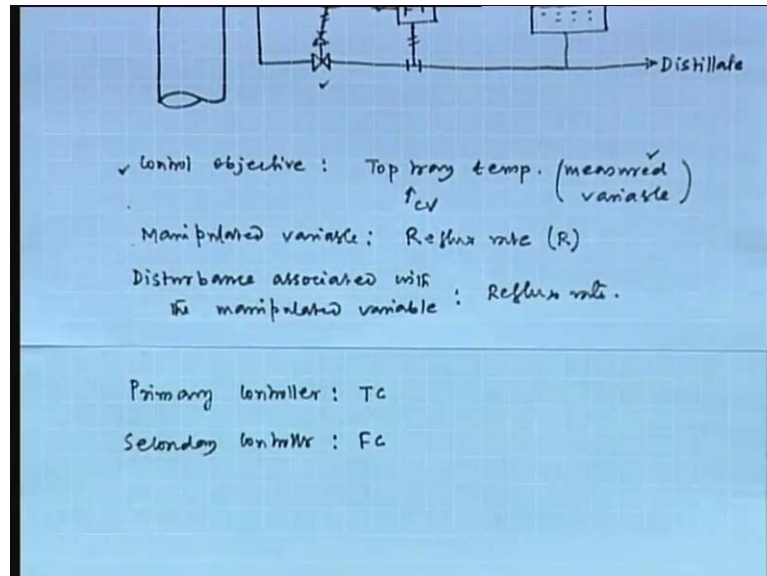 FT
Distillate
✓ Control objective : Top tray temp. (measured variable)
↑ CV
Manipulated variable : Reflux rate (R)
Disturbance associated with
the manipulated variable : Reflux rate.
Primary Controller : TC
Secondary Controller : FC